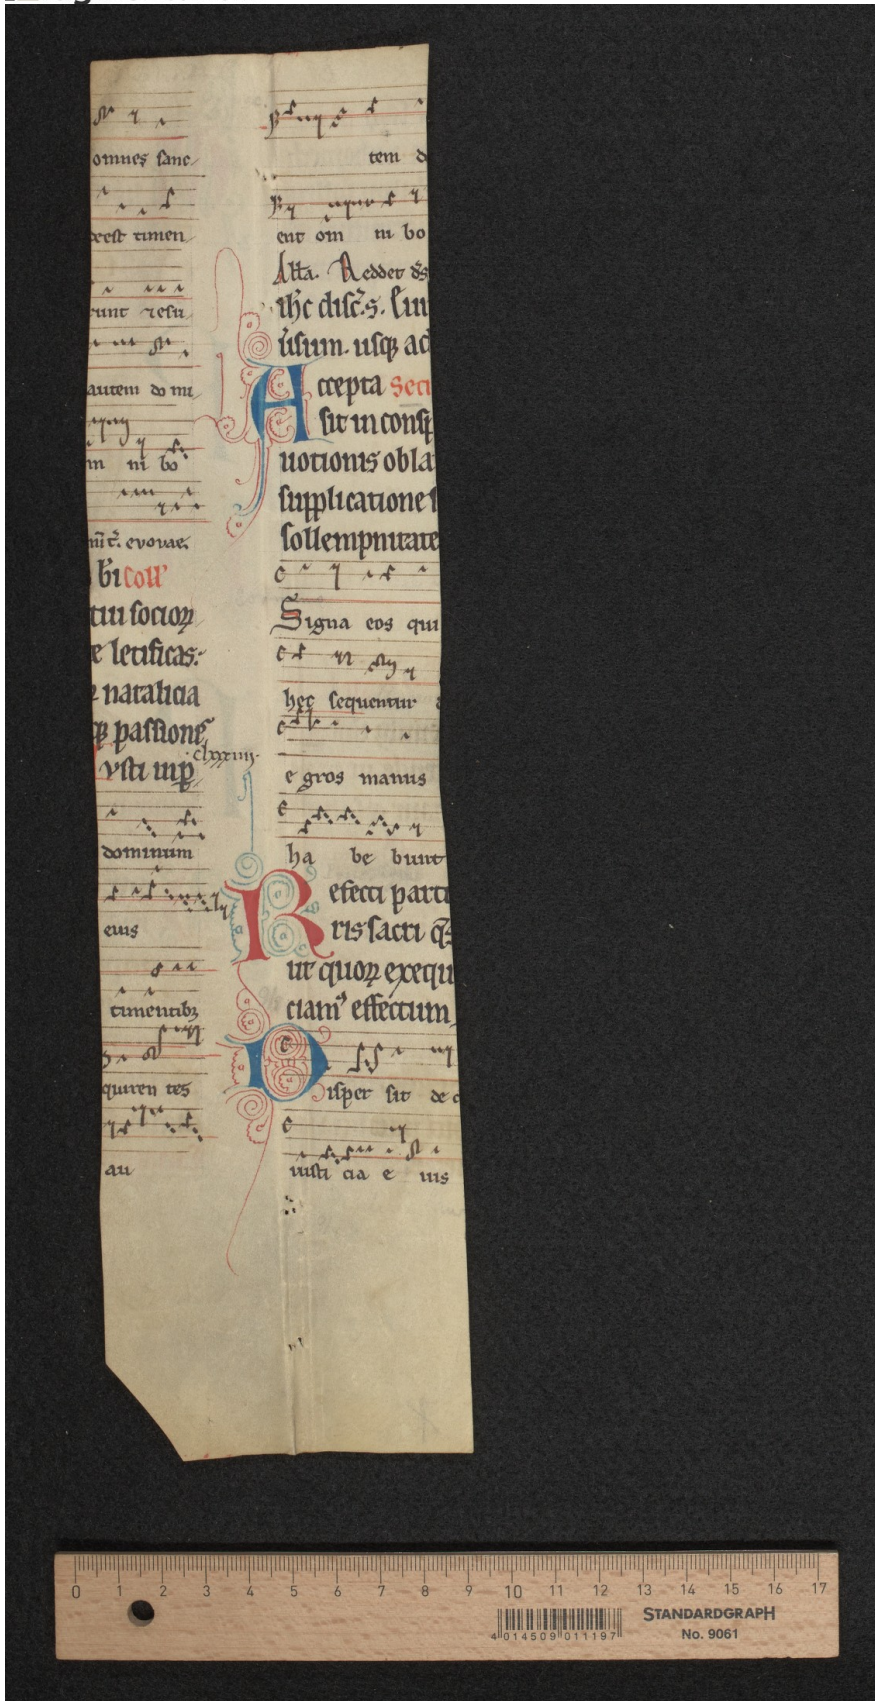 omnes sanc-
deest timen
runt ⁊ resu
autem do mi
in ni bo
evovae.
bi coll'
tui socioꝝ
e letificas.
natalicia
qꝫ passione
clxxxiiij.
ysti inp̄
dominum
eius
timentibꝫ
quiren tes
au
tem d
ent om ni bo
All'a. Reddet d̄s
ih̄c disc̄.s.
ūsum. usqꝫ ad
Accepta Secr
sit in consp
uotionis obla
supplicatione
sollempnitate
Signa eos qui
hec sequentur
e gros manus
ha be bunt
Refecti parti
ris sacri q̄s
ut quoꝝ exequi
ciam᷒ effectum
Disper sit de
iusti cia e ius
0 1 2 3 4 5 6 7 8 9 10 11 12 13 14 15 16 17
STANDARDGRAPH
4 014509 011197
No. 9061